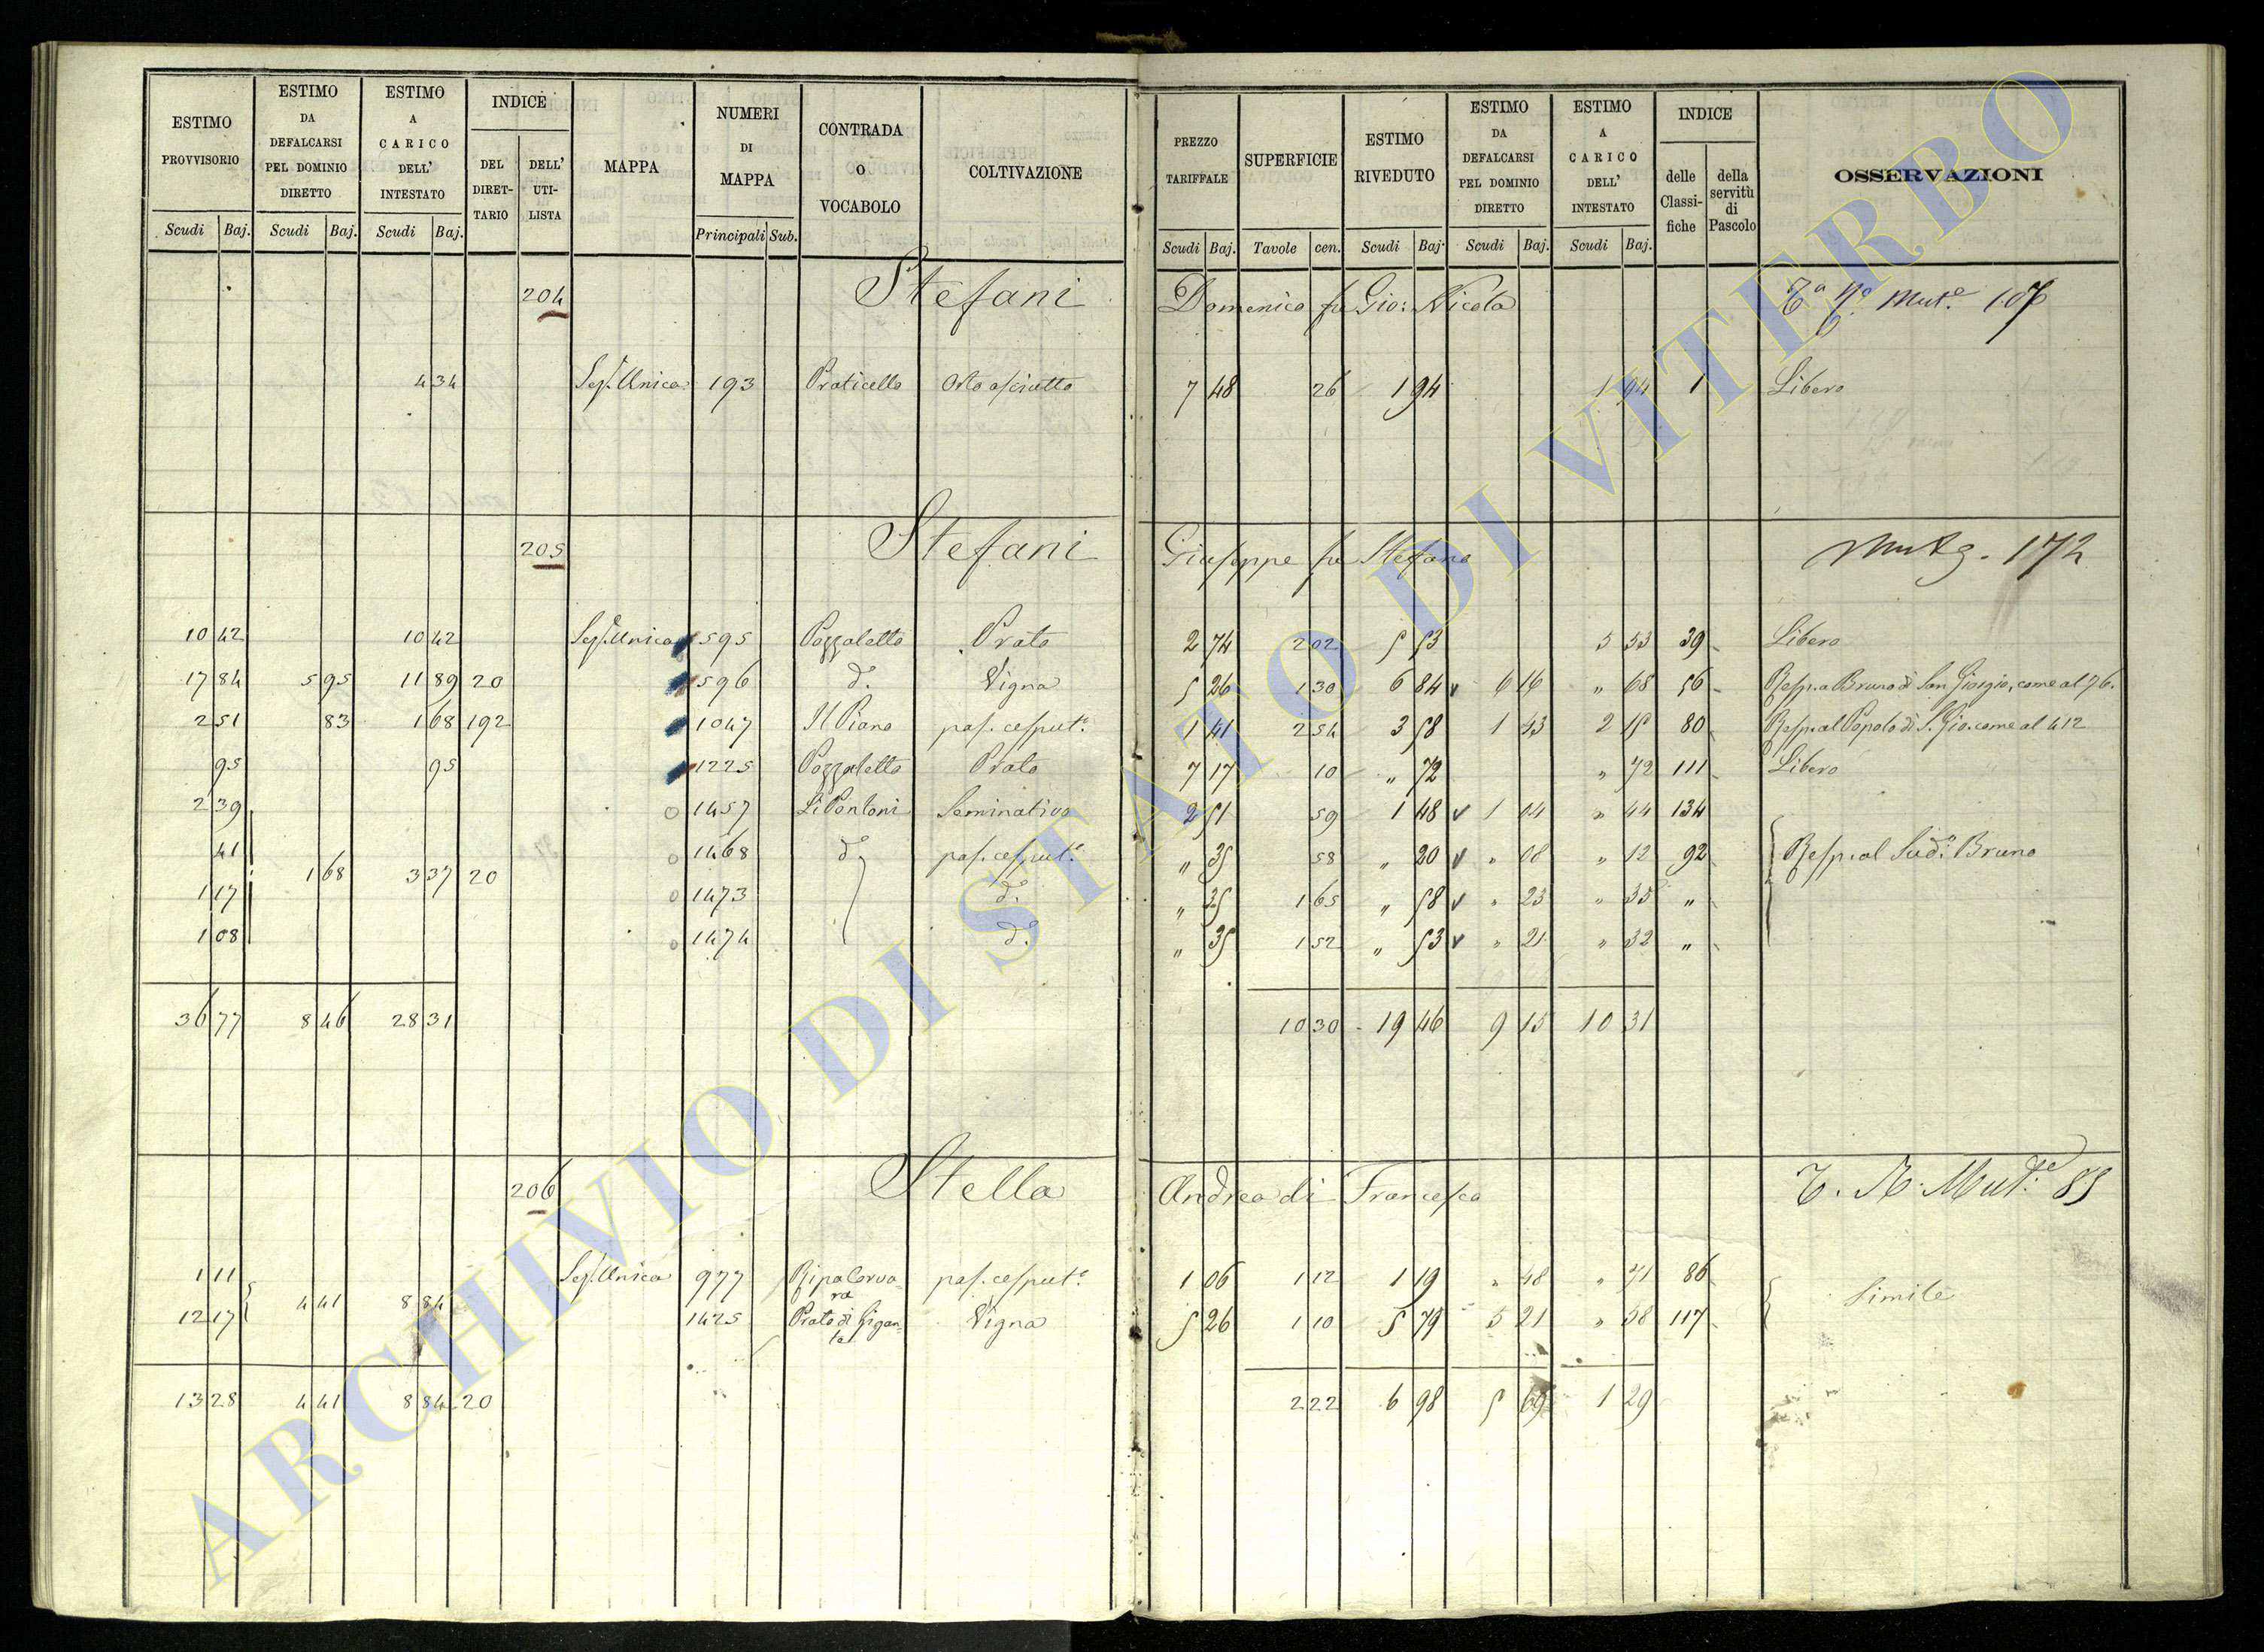 ESTIMO PROVVISORIO | ESTIMO DA DEFALCARSI PEL DOMINIO DIRETTO | ESTIMO A CARICO DELL' INTESTATO | INDICE | MAPPA | NUMERI DI MAPPA | CONTRADA O VOCABOLO | COLTIVAZIONE | PREZZO TARIFFALE | SUPERFICIE | ESTIMO RIVEDUTO | ESTIMO DA DEFALCARSI PEL DOMINIO DIRETTO | ESTIMO A CARICO DELL' INTESTATO | INDICE | OSSERVAZIONI
DEL DIRETTARIO | DELL' UTILISTA | delle Classifiche | della servitù di Pascolo
Scudi | Baj. | Scudi | Baj. | Scudi | Baj. | Principali | Sub. | Scudi | Baj. | Tavole | cen. | Scudi | Baj. | Scudi | Baj. | Scudi | Baj.
204 Stefani Domenico fu Gio: Nicola Mut.e 107
4 34 Sez. Unica 193 Praticello Orto asciutto 7 48 26 1 94 1 94 1 Libero
205 Stefani Giuseppe fu Stefano 172
10 42 10 42 Sez. Unica 595 Pozzaletto Prato 2 74 2 02 5 53 5 53 39 Libero
17 84 5 95 11 89 20 596 d.o Vigna 5 26 1 30 6 84 6 16 " 68 56 Resp. a Bruno di San Giorgio, come al 76.
2 51 83 1 68 192 1047 Il Piano pas. cesput.o 1 41 2 54 3 58 1 43 2 15 80 Resp. al Popolo di S. Gio. come al 412
95 95 1225 Pozzaletto Prato 7 17 10 " 72 " 72 111 Libero
2 39 1457 Li Pontoni Seminativo 2 51 59 1 48 1 04 " 44 134
41 1468 d.o pas. cesput.o " 35 58 " 20 " 08 " 12 92 Resp. al Sud.o Bruno
1 68 3 37 20
1 17 1473 d.o " 35 1 65 " 58 " 23 " 35 "
1 08 1474 d.o " 35 1 52 " 53 " 21 " 32 "
36 77 8 46 28 31 10 30 19 46 9 15 10 31
206 Stella Andrea di Francesco Mut.e 85
1 11 Sez. Unica 977 Ripa Corvara pas. cesput.o 1 06 1 12 1 19 " 48 " 71 86
4 41 8 84 Simile
12 17 1425 Prato di Giganta Vigna 5 26 1 10 5 79 5 21 " 58 117
13 28 4 41 8 84 20 2 22 6 98 5 69 1 29
ARCHIVIO DI STATO DI VITERBO